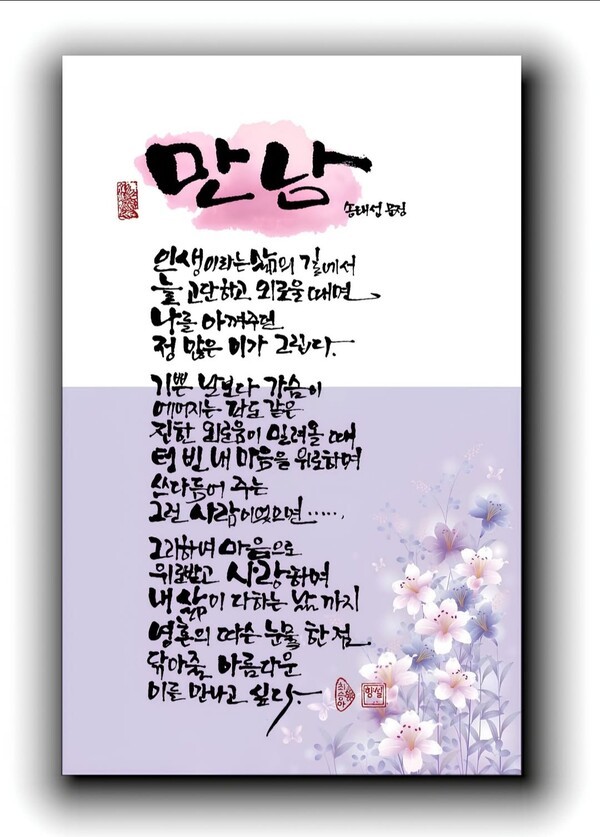 만남
송태성 문장
인생이라는 삶의 길에서
늘 고단하고 외로울 때면
나를 아껴주던
정 많은 이가 그립다.
기쁜 날보다 가슴이
에어지는 파도 같은
진한 외로움이 밀려올 때
텅 빈 내 마음을 위로하며
쓰다듬어 주는
그런 사람이 있으면......
그리하여 마음으로
위로받고 사랑하며
내 삶이 다하는 날까지
영혼의 따순 눈물 한 점
닦아줄 아름다운
이를 만나고 싶다.